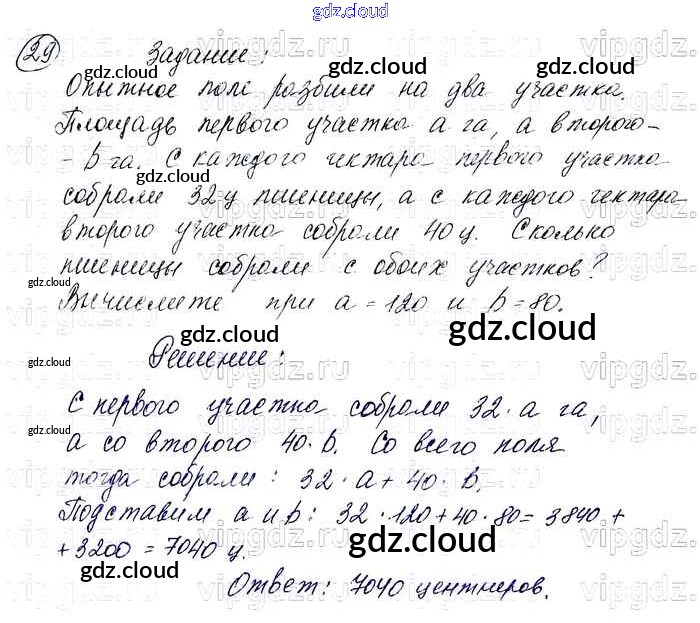 gdz.cloud
29 Задание:
Опытное поле разбили на два участка.
Площадь первого участка а га, а второго -
- b га. С каждого гектара первого участка
собрали 32 ц пшеницы, а с каждого гектара
второго участка собрали 40 ц. Сколько
пшеницы собрали с обоих участков?
Вычислите при а = 120 и b = 80.
Решение:
С первого участка собрали 32 · а га,
а со второго 40 · b. Со всего поля
тогда собрали: 32 · а + 40 · b.
Подставим а и b: 32 · 120 + 40 · 80 = 3840 +
+ 3200 = 7040 ц.
Ответ: 7040 центнеров.